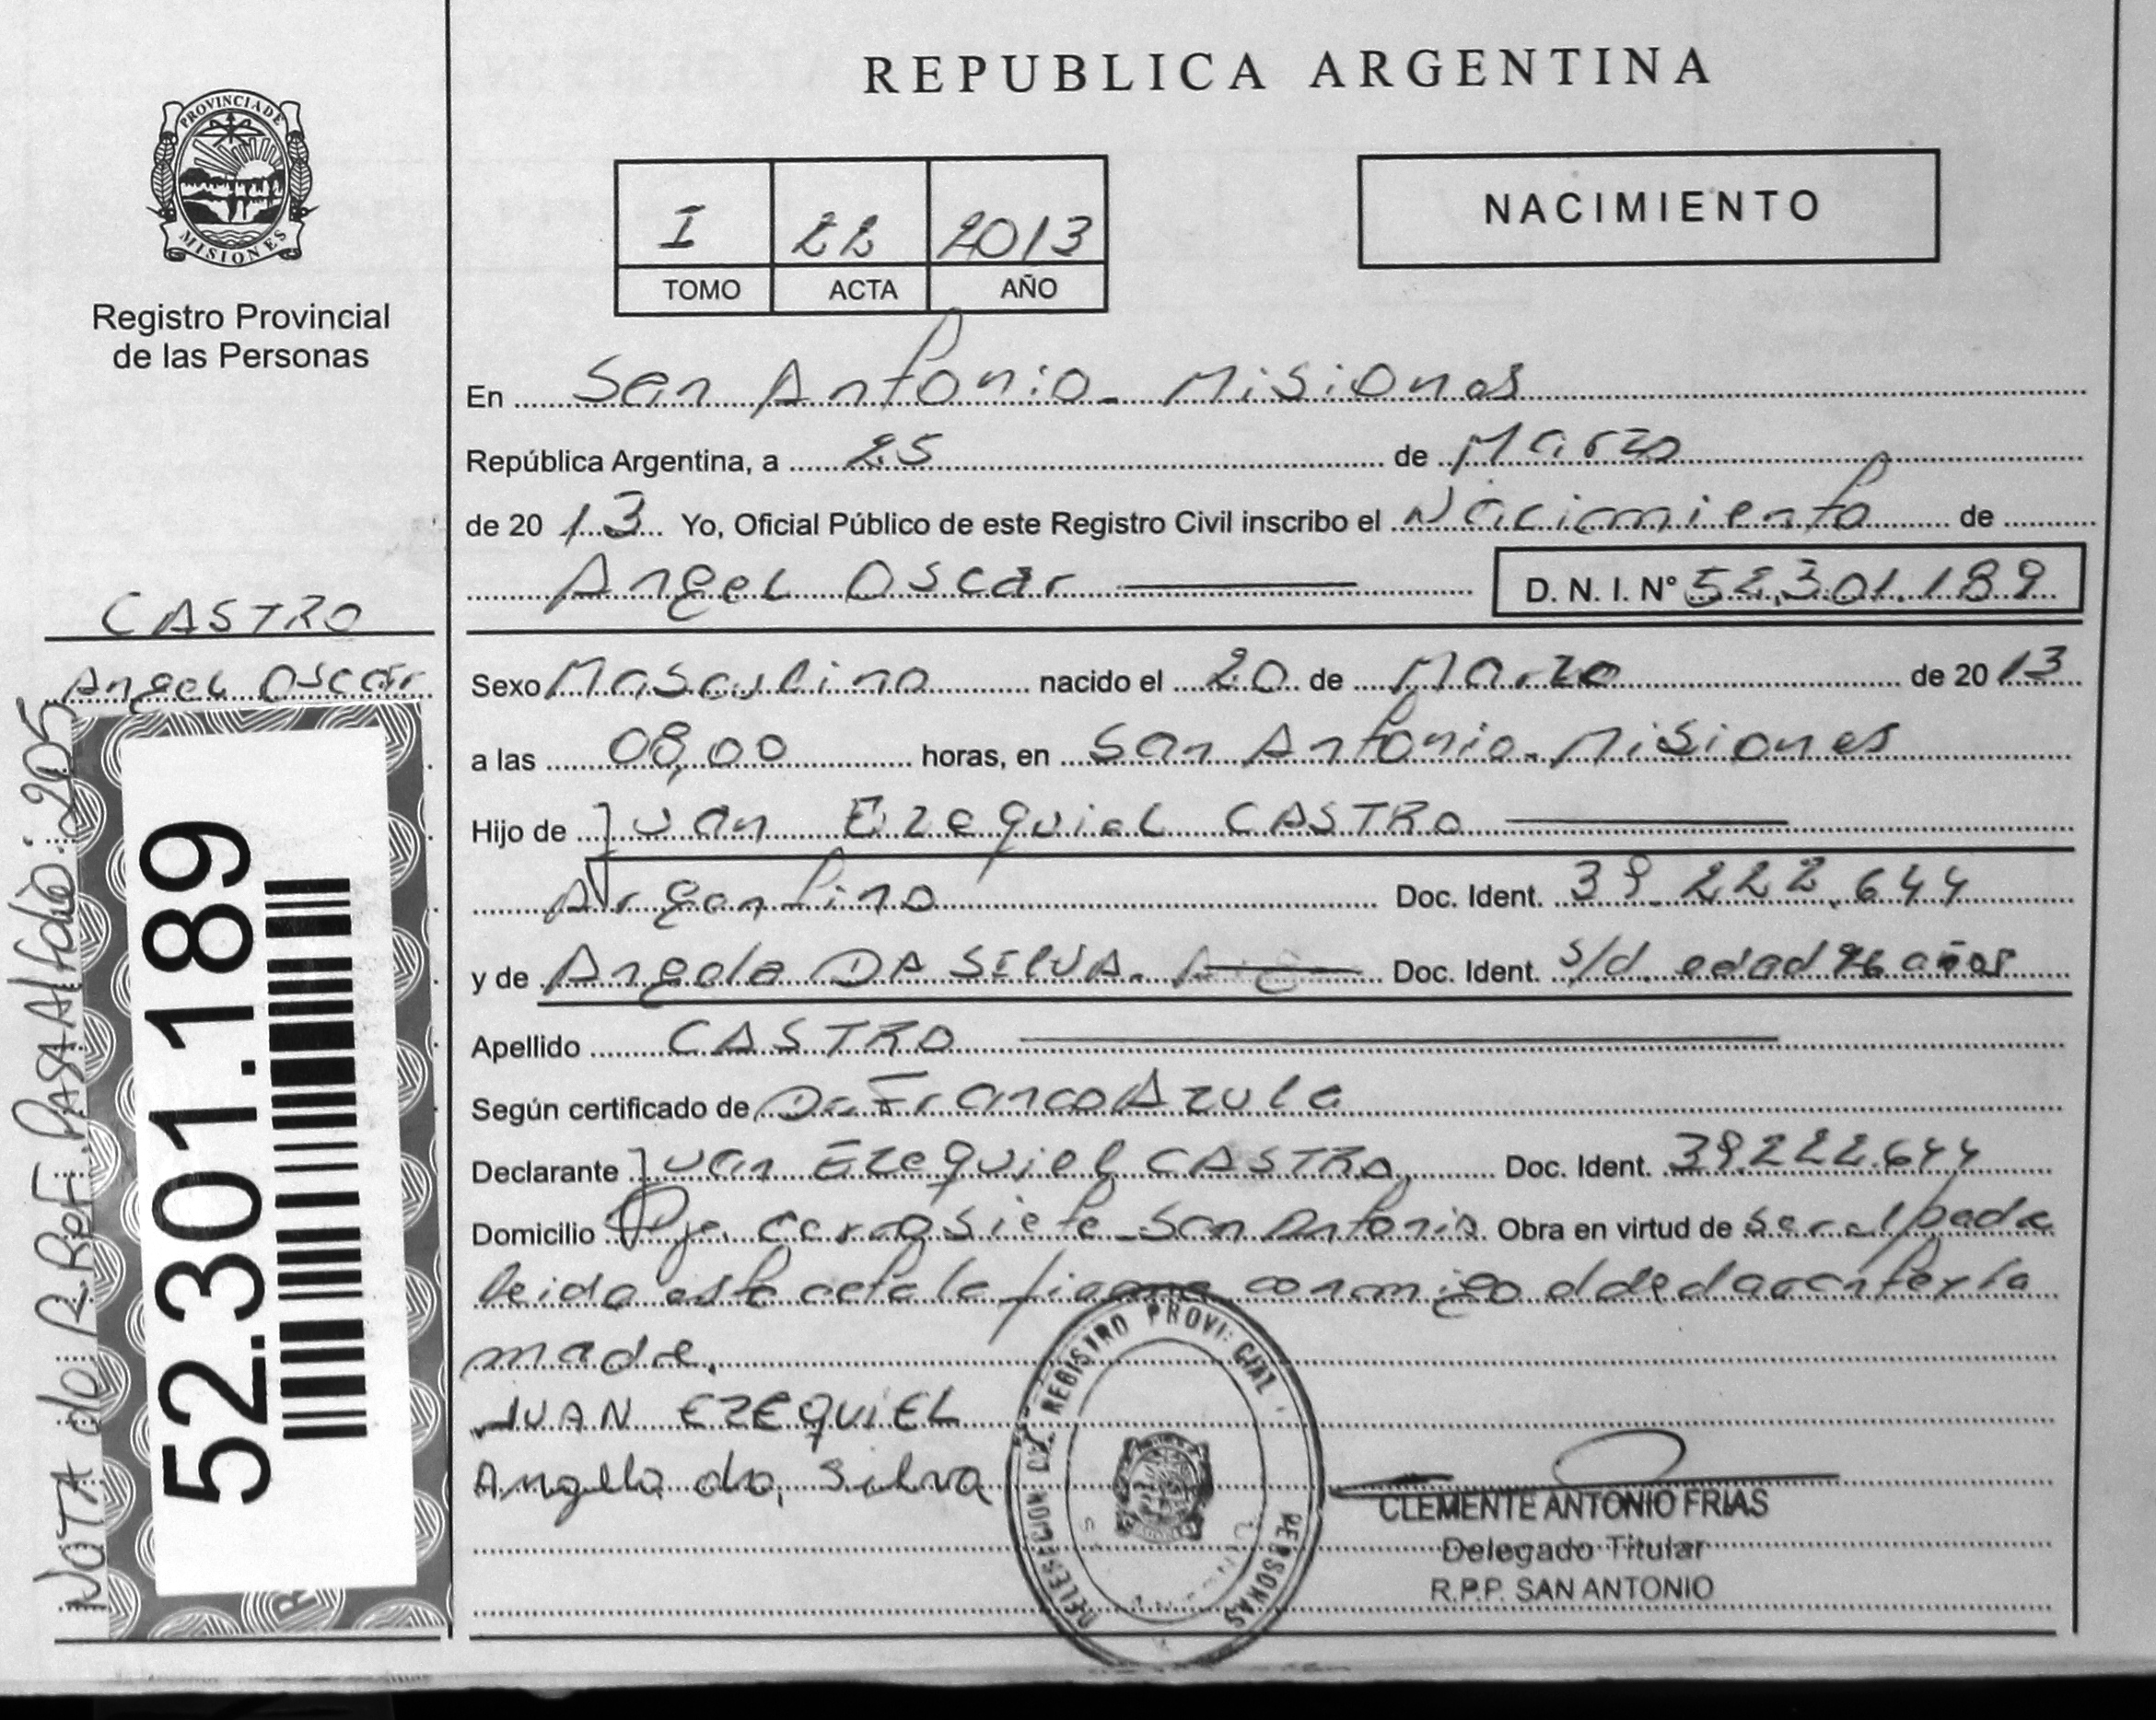 REPUBLICA ARGENTINA
PROVINCIA DE
MISIONES
Registro Provincial
de las Personas
I 22 2013
TOMO ACTA AÑO
NACIMIENTO
En San Antonio - Misiones
República Argentina, a 25 de Marzo
de 2013 Yo, Oficial Público de este Registro Civil inscribo el Nacimiento de
Angel Oscar D. N. I. Nº 52.301.189
CASTRO
Angel Oscar
Nota de R. Ref. Pasa Al folio: 205
52.301.189
Sexo Masculino nacido el 20 de Marzo de 2013
a las 08,00 horas, en San Antonio - Misiones
Hijo de Juan Ezequiel CASTRO
Argentino Doc. Ident. 39.222.644
y de Angela DA SILVA. Doc. Ident. s/d. edad años
Apellido CASTRO
Según certificado de Dr. Franco Azula
Declarante Juan Ezequiel CASTRO Doc. Ident. 39.222.644
Domicilio Pje. siete - San Antonio Obra en virtud de ser el padre
leida esta acta la firma conmigo el declarante y la
madre.
JUAN EZEQUIEL
Angela da Silva
REGISTRO PROVINCIAL
PERSONAS
CLEMENTE ANTONIO FRIAS
Delegado Titular
R.P.P. SAN ANTONIO